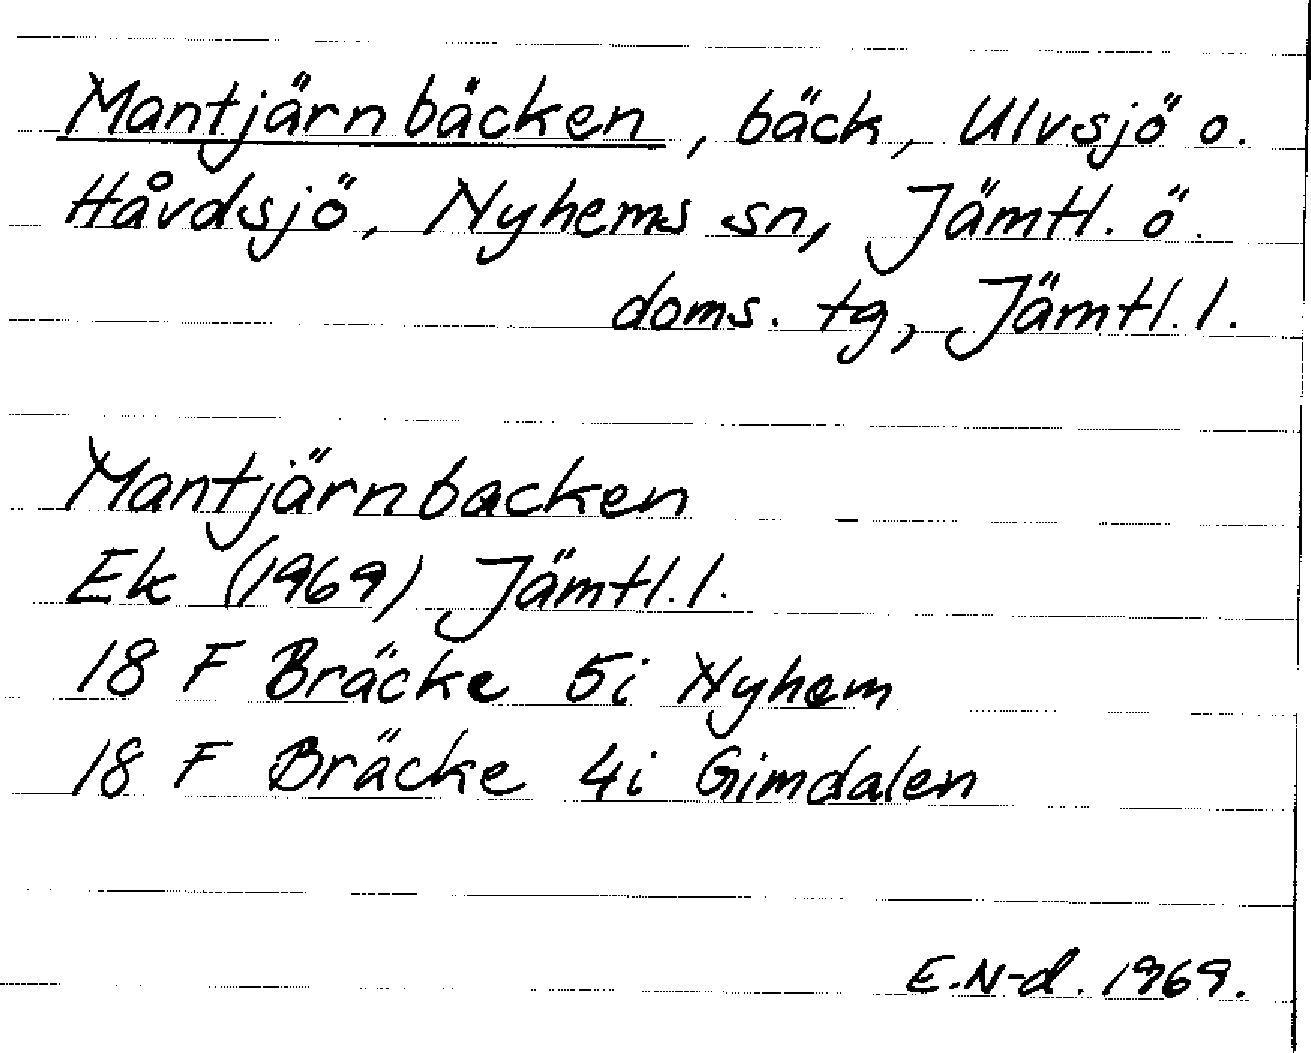 Mantjärnbäcken, bäck, Ulvsjö o.
Håvdsjö, Nyhems sn, Jämtl. ö.
doms. tg, Jämtl. l.
Mantjärnbacken
Ek (1969) Jämtl. l.
18 F Bräcke 5i Nyhem
18 F Bräcke 4i Gimdalen
E.N-d. 1969.